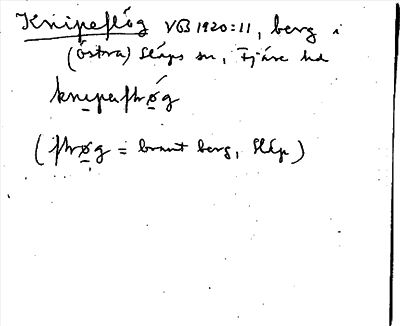 Knipeflóg VGB 1920:11, berg i
(Östra) Släps sn, Fjäre hd
kniperfløg
(fløg = brant berg, Släp)